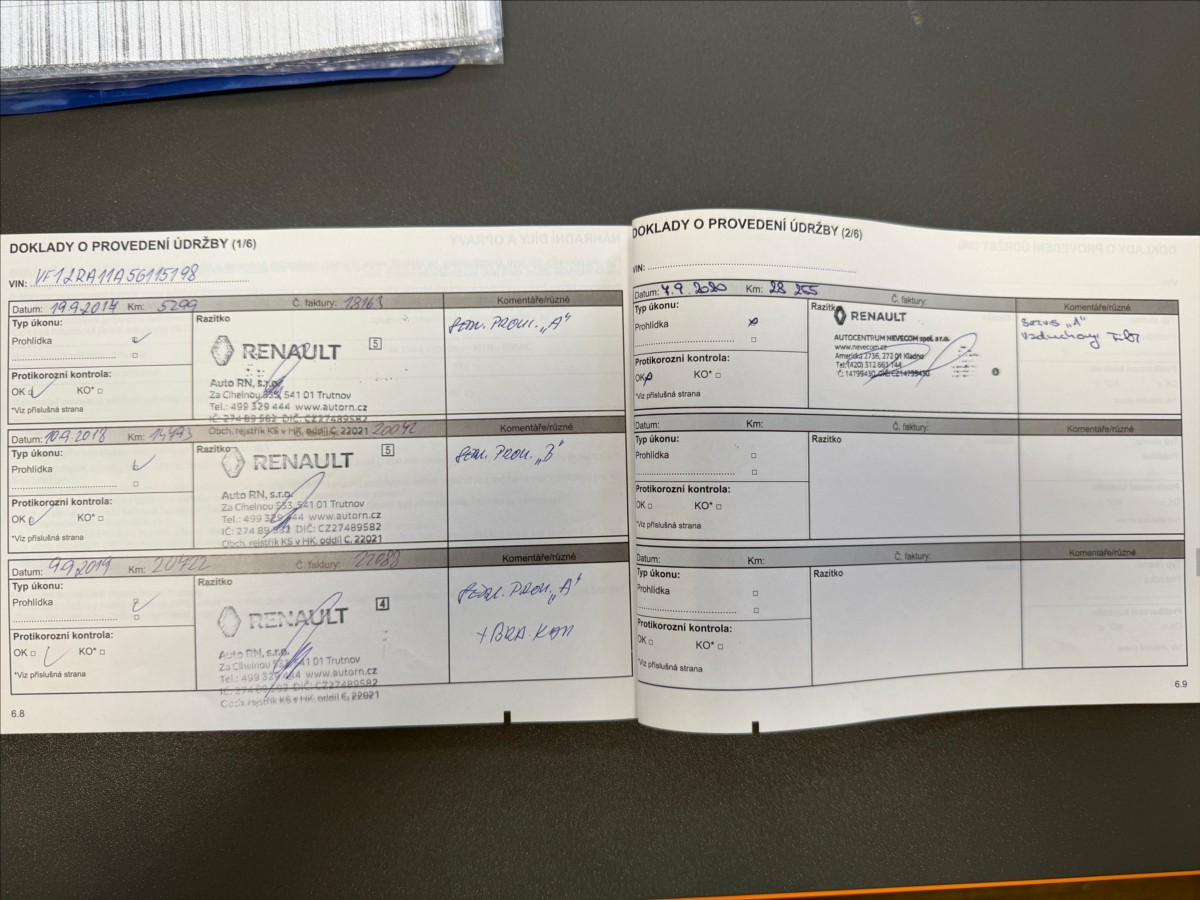 DOKLADY O PROVEDENÍ ÚDRŽBY (1/6)
VIN: VF12RA11A56115198
Datum: 19.9.2017 Km: 5299 Č. faktury: 18163 Komentáře/různé
Typ úkonu:
Prohlídka
Protikorozní kontrola:
OK KO*
*Viz příslušná strana
Razítko
RENAULT 5
Auto RN, s.r.o.
Za Cihelnou 533, 541 01 Trutnov
Tel.: 499 329 444 www.autorn.cz
IČ: 274 89 582 DIČ: CZ27489582
Obch. rejstřík KS v HK, oddíl C, 22021
"A"
Datum: 10.9.2018 Km: 14793 20042 Komentáře/různé
Typ úkonu:
Prohlídka
Protikorozní kontrola:
OK KO*
*Viz příslušná strana
Razítko
RENAULT 5
Auto RN, s.r.o.
Za Cihelnou 533, 541 01 Trutnov
Tel.: 499 329 444 www.autorn.cz
IČ: 274 89 582 DIČ: CZ27489582
Obch. rejstřík KS v HK, oddíl C, 22021
"B"
Datum: 9.9.2019 Km: 20722 Č. faktury: 22088 Komentáře/různé
Typ úkonu:
Prohlídka
Protikorozní kontrola:
OK KO*
*Viz příslušná strana
Razítko
RENAULT 4
Auto RN, s.r.o.
Za Cihelnou 533, 541 01 Trutnov
Tel.: 499 329 444 www.autorn.cz
IČ: 274 89 582 DIČ: CZ27489582
Obch. rejstřík KS v HK, oddíl C, 22021
"A"
6.8
DOKLADY O PROVEDENÍ ÚDRŽBY (2/6)
VIN:
Datum: 7.9.2020 Km: 28 255 Č. faktury: Komentáře/různé
Typ úkonu:
Prohlídka
Protikorozní kontrola:
OK KO*
*Viz příslušná strana
Razítko
RENAULT
AUTOCENTRUM NEVECOM spol. s r.o.
www.nevecom.cz
Americká 2736, 272 01 Kladno
Tel: (420) 312 663 144
IČ: 14799430 DIČ: CZ14799430
Servis "A"
Vzduchový
Datum: Km: Č. faktury: Komentáře/různé
Typ úkonu:
Prohlídka
Protikorozní kontrola:
OK KO*
*Viz příslušná strana
Razítko
Datum: Km: Č. faktury: Komentáře/různé
Typ úkonu:
Prohlídka
Protikorozní kontrola:
OK KO*
*Viz příslušná strana
Razítko
6.9